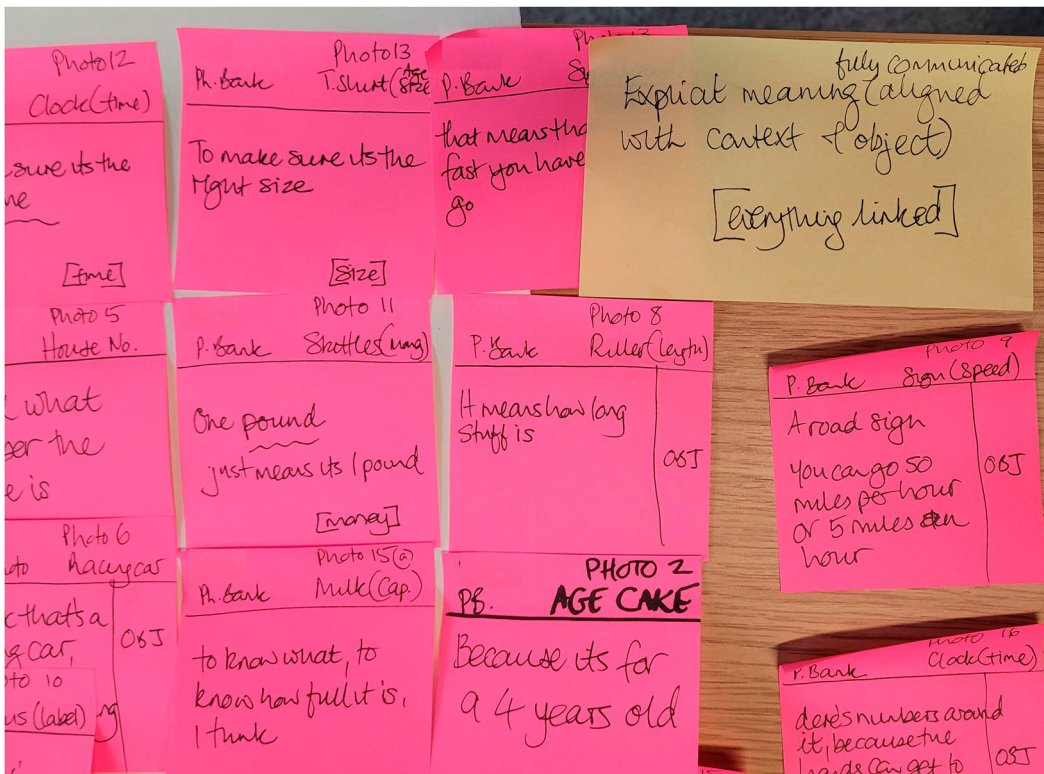 Photo 12
Clock (time)
sure its the
[time]
Photo 13
Ph. Bank T. Shirt (Age Size
To make sure its the
right size
[Size]
P. Bank
that means tha
fast you have
go
fully communicated
Explicit meaning (aligned
with context & object)
[everything linked]
Photo 5
House No.
what
the
is
Photo 11
P. Bank Skittles (mony)
One pound
just means its 1 pound
[money]
Photo 8
P. Bank Ruller (length)
It means how long
Stuff is
OBJ
Photo 9
P. Bank Sign (Speed)
A road sign
you can go 50
miles per hour
or 5 miles an
hour
OBJ
Photo 6
Racing car
thats a
car,
OBJ
10
(label)
Photo 15 (a)
Ph. Bank Milk (Cap.)
to know what, to
know how full it is,
I think
PHOTO 2
PB. AGE CAKE
Because its for
a 4 years old
Photo 16
P. Bank Clock (time)
deres numbers around
it, because the
hands can get to
OBJ